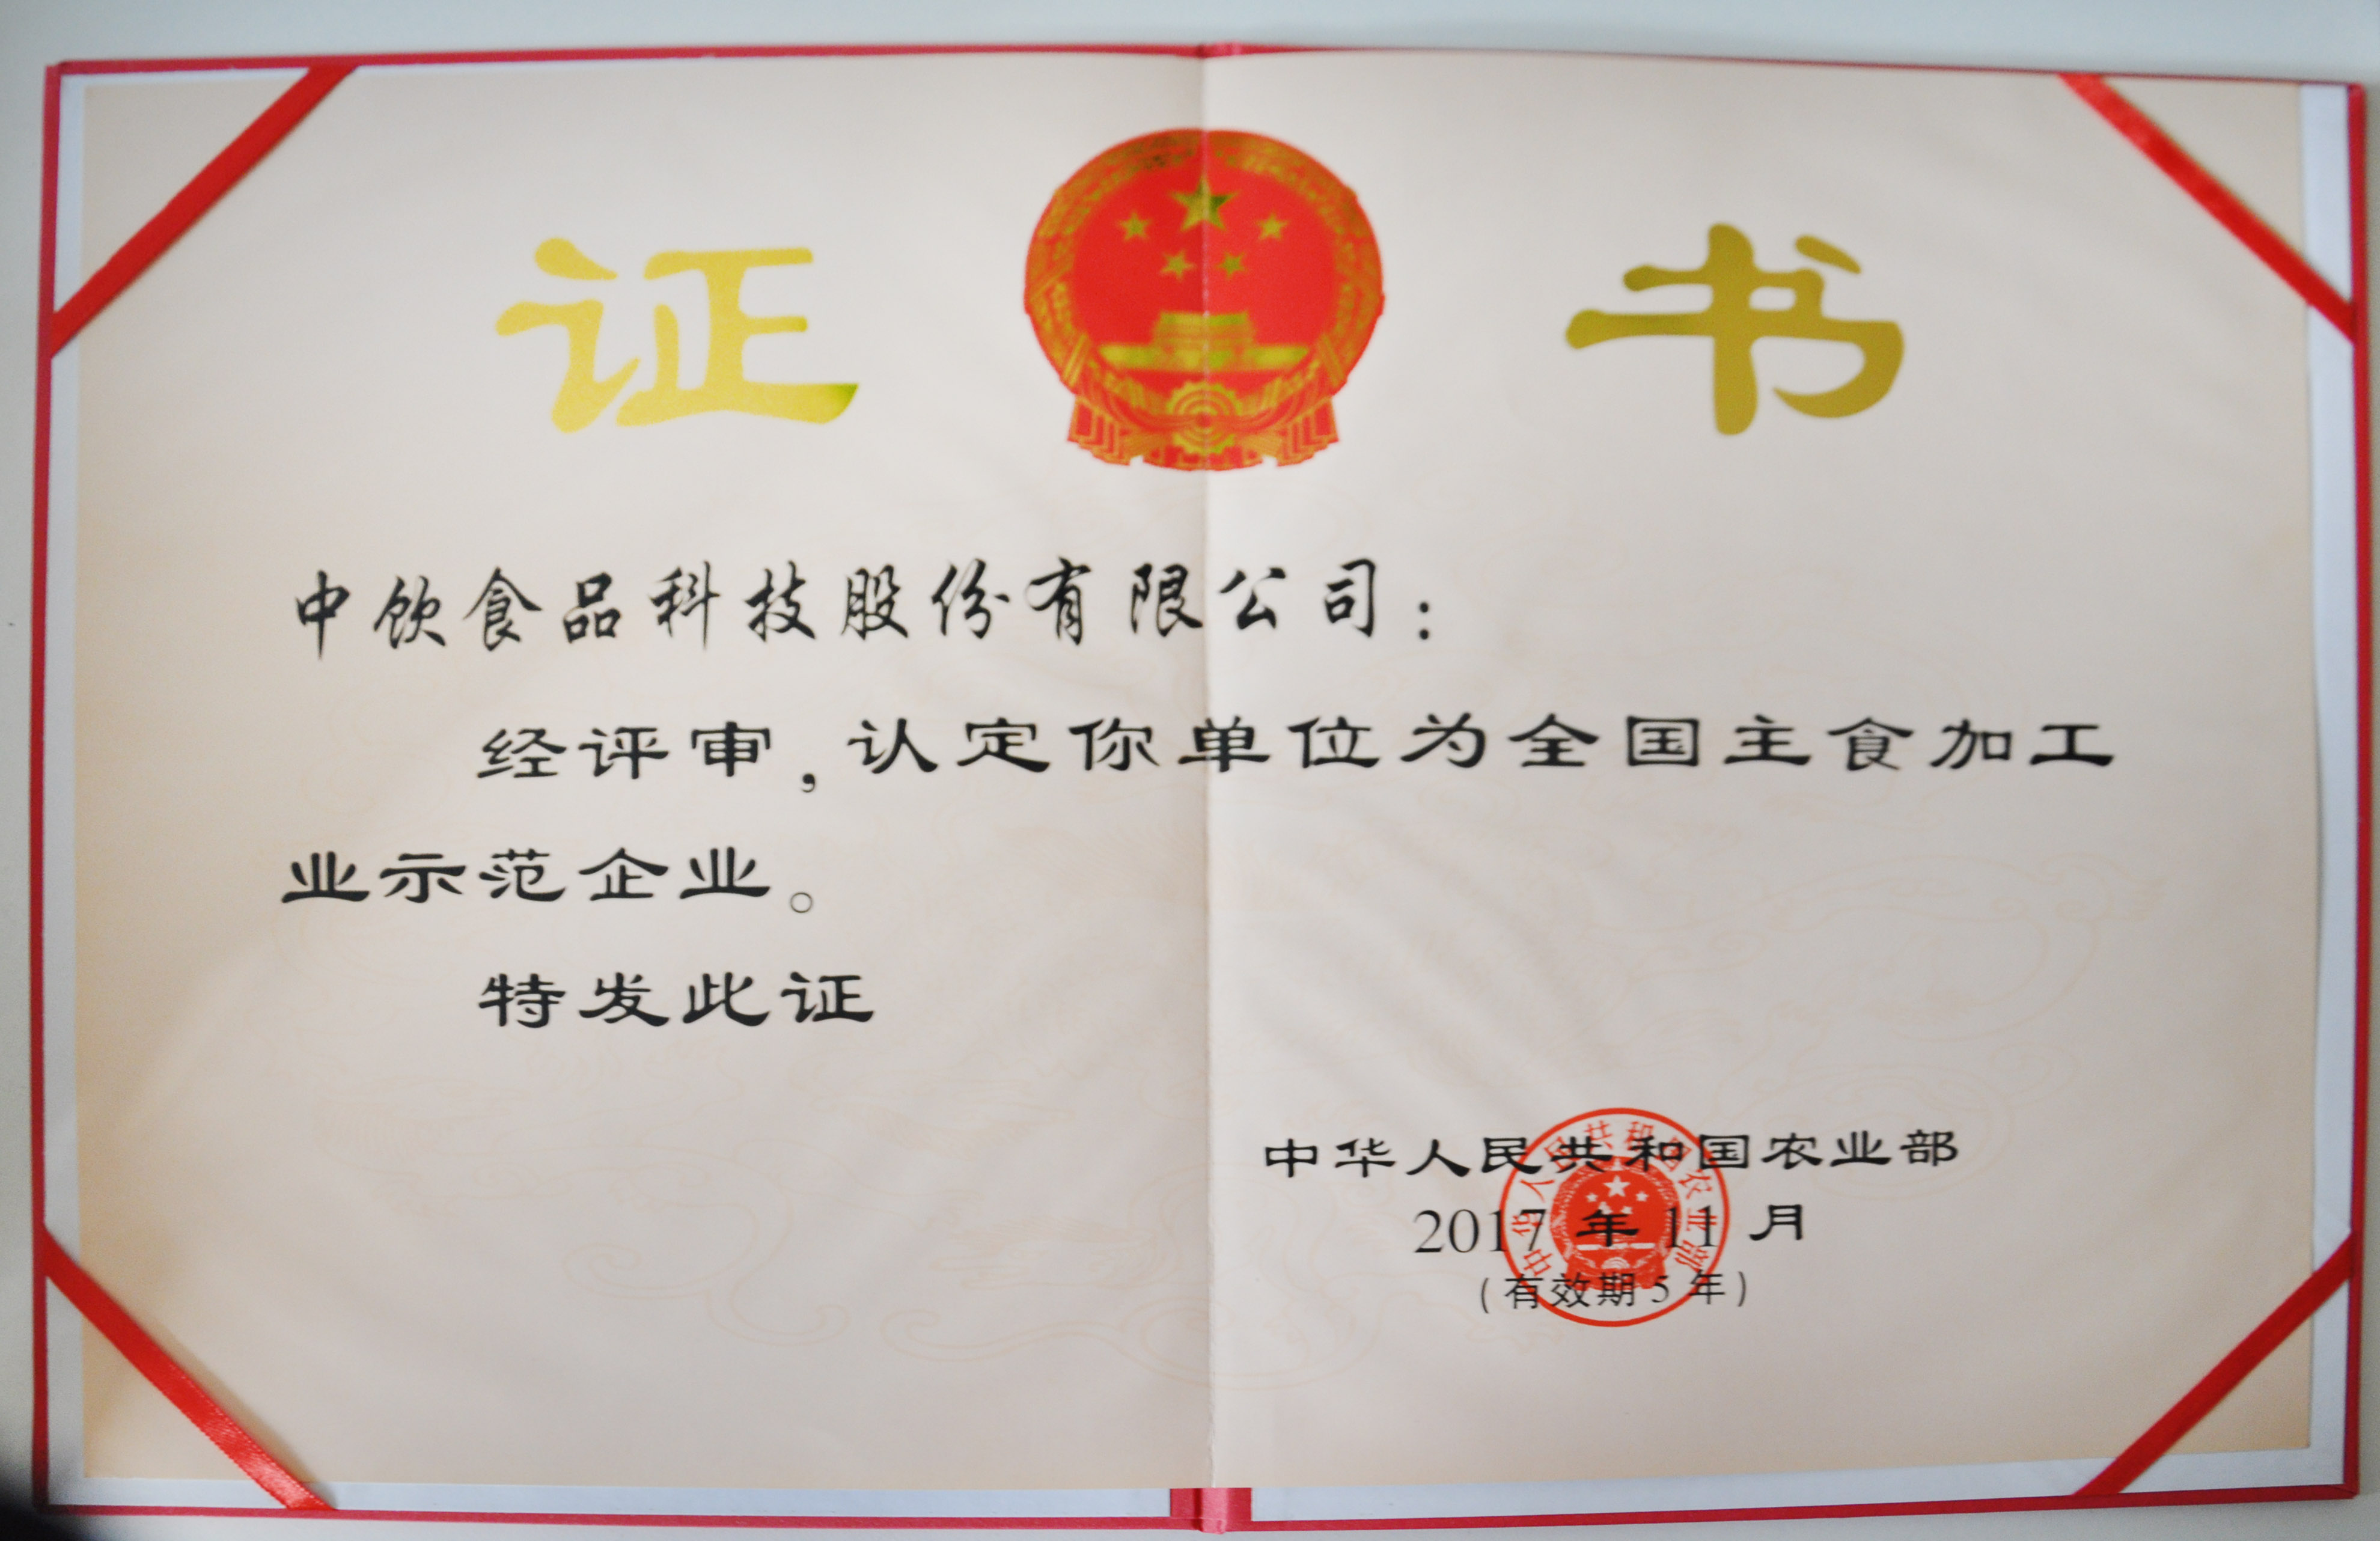 证 书
中饮食品科技股份有限公司：
经评审，认定你单位为全国主食加工
业示范企业。
特发此证
中华人民共和国农业部
2017 年 11 月
（有效期 5 年）
中华人民共和国农业部